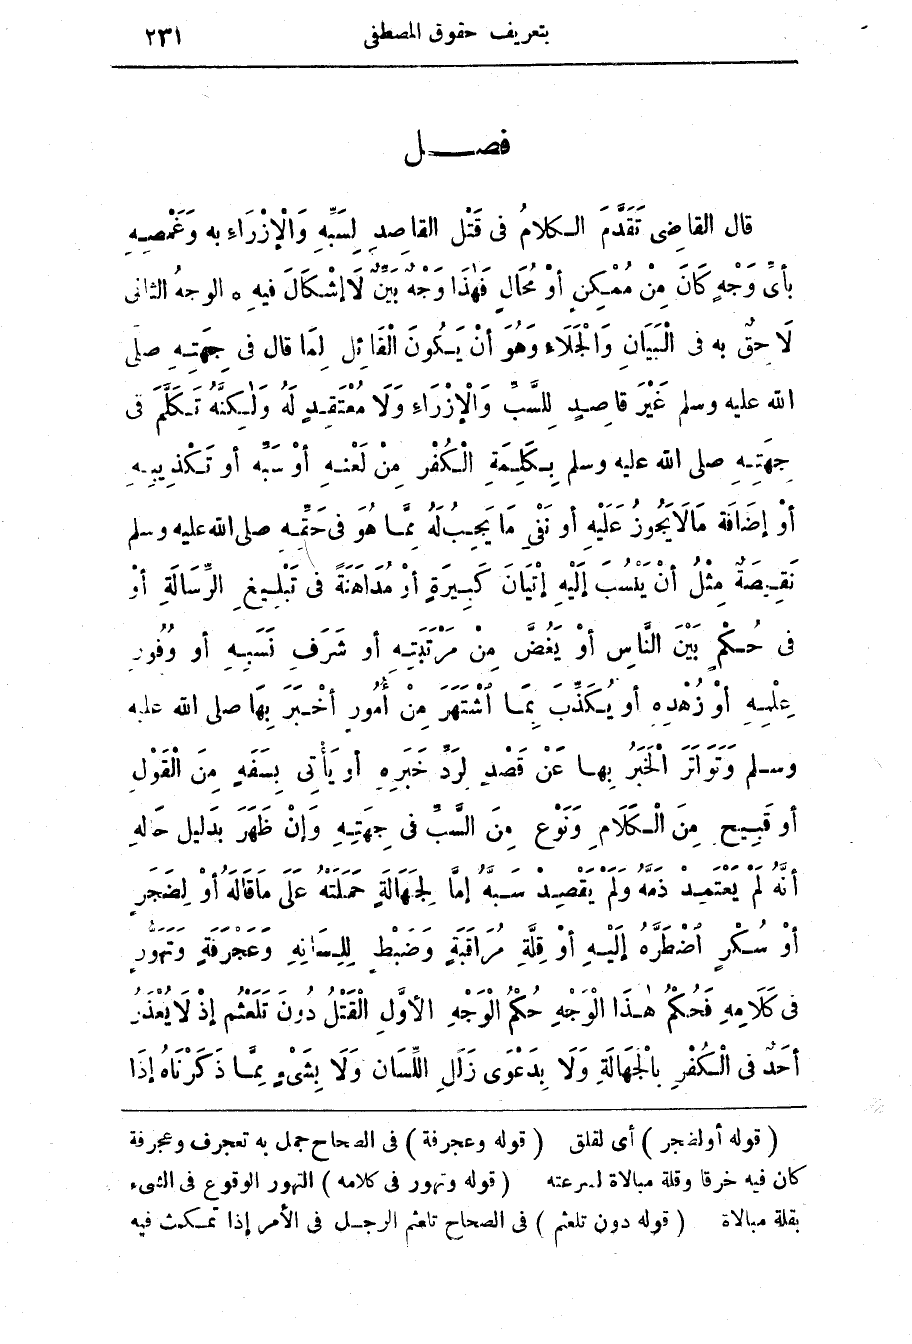 بتعريف حقوق المصطفى ٢٣١
فصل
قال القاضى تَقَدَّمَ الكلامُ فى قَتْل القاصِدِ لِسَبِّهِ وَالْإِزْرَاءِ به وَغَمْصِهِ
بأىِّ وَجْهٍ كَانَ مِنْ مُمْكِنٍ أَوْ مُحَالٍ فَهٰذَا وَجْهٌ بَيِّنٌ لَا إِشْكَالَ فيهِ ه الوجهُ الثانى
لَاحِقٌ به فى الْبَيَانِ وَالْجَلَاءِ وَهُوَ أَنْ يَكُونَ الْقَائِل لِمَا قال فى جِهَتِهِ صلى
الله عليه وسلم غَيْرَ قاصِدٍ لِلسَّبِّ وَالْإِزْرَاءِ وَلَا مُعْتَقِدٍ لَهُ وَلٰكِنَّهُ تَكَلَّمَ فى
جِهَتِهِ صلى الله عليه وسلم بِكَلِمَةِ الْكُفْرِ مِنْ لَعْنِهِ أَوْ سَبِّه أو تَكْذِيبِهِ
أَوْ إضَافَة مَالَا يَجُوزُ عَلَيْهِ أو نَفْىِ مَا يَجِبُ لَهُ مِمَّا هُوَ فى حَقِّهِ صلى الله عليه وسلم
نَقِيصَةٌ مِثْلُ أَنْ يَنْسُبَ إِلَيْهِ إتْيَانَ كَبِيرَةٍ أَوْ مُدَاهَنَةً فى تَبْلِيغِ الرِّسَالَةِ أَوْ
فى حُكْمٍ بَيْنَ النَّاسِ أَوْ يَغُضَّ مِنْ مَرْتَبَتِهِ أو شَرَفِ نَسَبِهِ أو وُفُورِ
عِلْمِهِ أَوْ زُهْدِهِ أو يُكَذِّبَ بِمَا اشْتَهَرَ مِنْ أُمُورٍ أخْبَرَ بِهَا صلى الله عليه
وسلم وَتَوَاتَرَ الْخَبَرُ بها عَنْ قَصْدٍ لِرَدِّ خَبَرِهِ أو يَأْتى بِسَفَهٍ مِنَ الْقَوْلِ
أو قَبِيحٍ مِنَ الْكَلَامِ وَنَوْعٍ مِنَ السَّبِّ فى جِهَتِهِ وَإنْ ظَهَرَ بِدَلِيل حَالِهِ
أنَّهُ لَمْ يَعْتَمِدْ ذَمَّهُ وَلَمْ يَقْصِدْ سَبَّهُ إمَّا لِجَهَالَةٍ حَمَلَتْهُ عَلَى مَا قَالَهُ أَوْ لِضَجَرٍ
أَوْ سُكْرٍ اضْطَرَّهُ إلَيْهِ أوْ قِلَّةِ مُرَاقَبَةٍ وَضَبْطٍ لِلِسَانِهِ وَعَجْرَفَةٍ وَتَهَوُّرٍ
فى كَلَامِهِ فَحُكْمُ هٰذَا الْوَجْهِ حُكْمُ الْوَجْهِ الأوَّلِ الْقَتْلُ دُونَ تَلَعْثُم إذْ لَا يُعْذَرُ
أحَدٌ فى الْكُفْرِ بِالْجَهَالَةِ وَلَا بِدَعْوَى زَلَلِ اللِّسَانِ وَلَا بِشَىْءٍ مِمَّا ذَكَرْنَاهُ إذَا
( قوله أولضجر ) أى لقلق ( قوله وعجرفة ) فى الصحاح جمل به تعجرف وعجرفة
كان فيه خرقا وقلة مبالاة لسرعته ( قوله وتهور فى كلامه ) التهور الوقوع فى الشىء
بقلة مبالاة ( قوله دون تلعثم ) فى الصحاح تلعثم الرجل فى الأمر إذا تمكث فيه